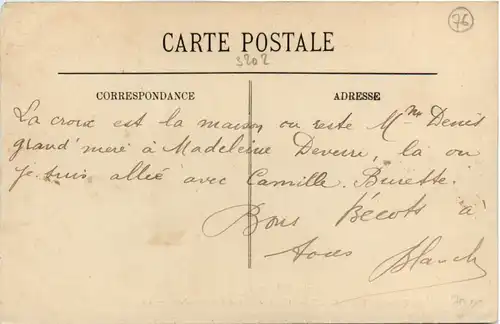 76
CARTE POSTALE
3202
CORRESPONDANCE
ADRESSE
La croix est la maison ou reste Mme Denis
grand'mere à Madeleine Deverre, la ou
je suis allée avec Camille. Burette.
Bons Bécots à
toues
Blanch